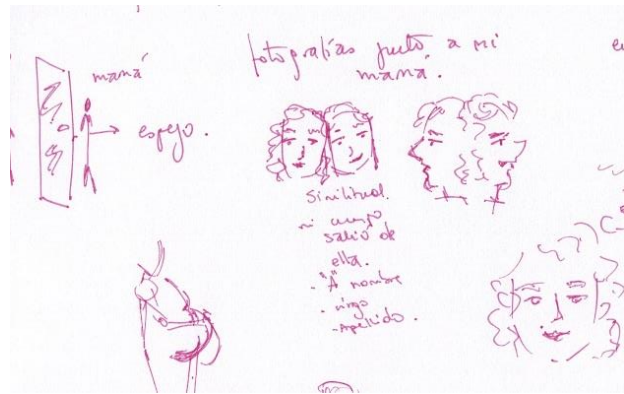 mamá
espejo.
fotografías junto a mi
mamá.
Similitud.
mi cuerpo
salió de
ella.
. "A" nombre
. virgo
- Apellido.